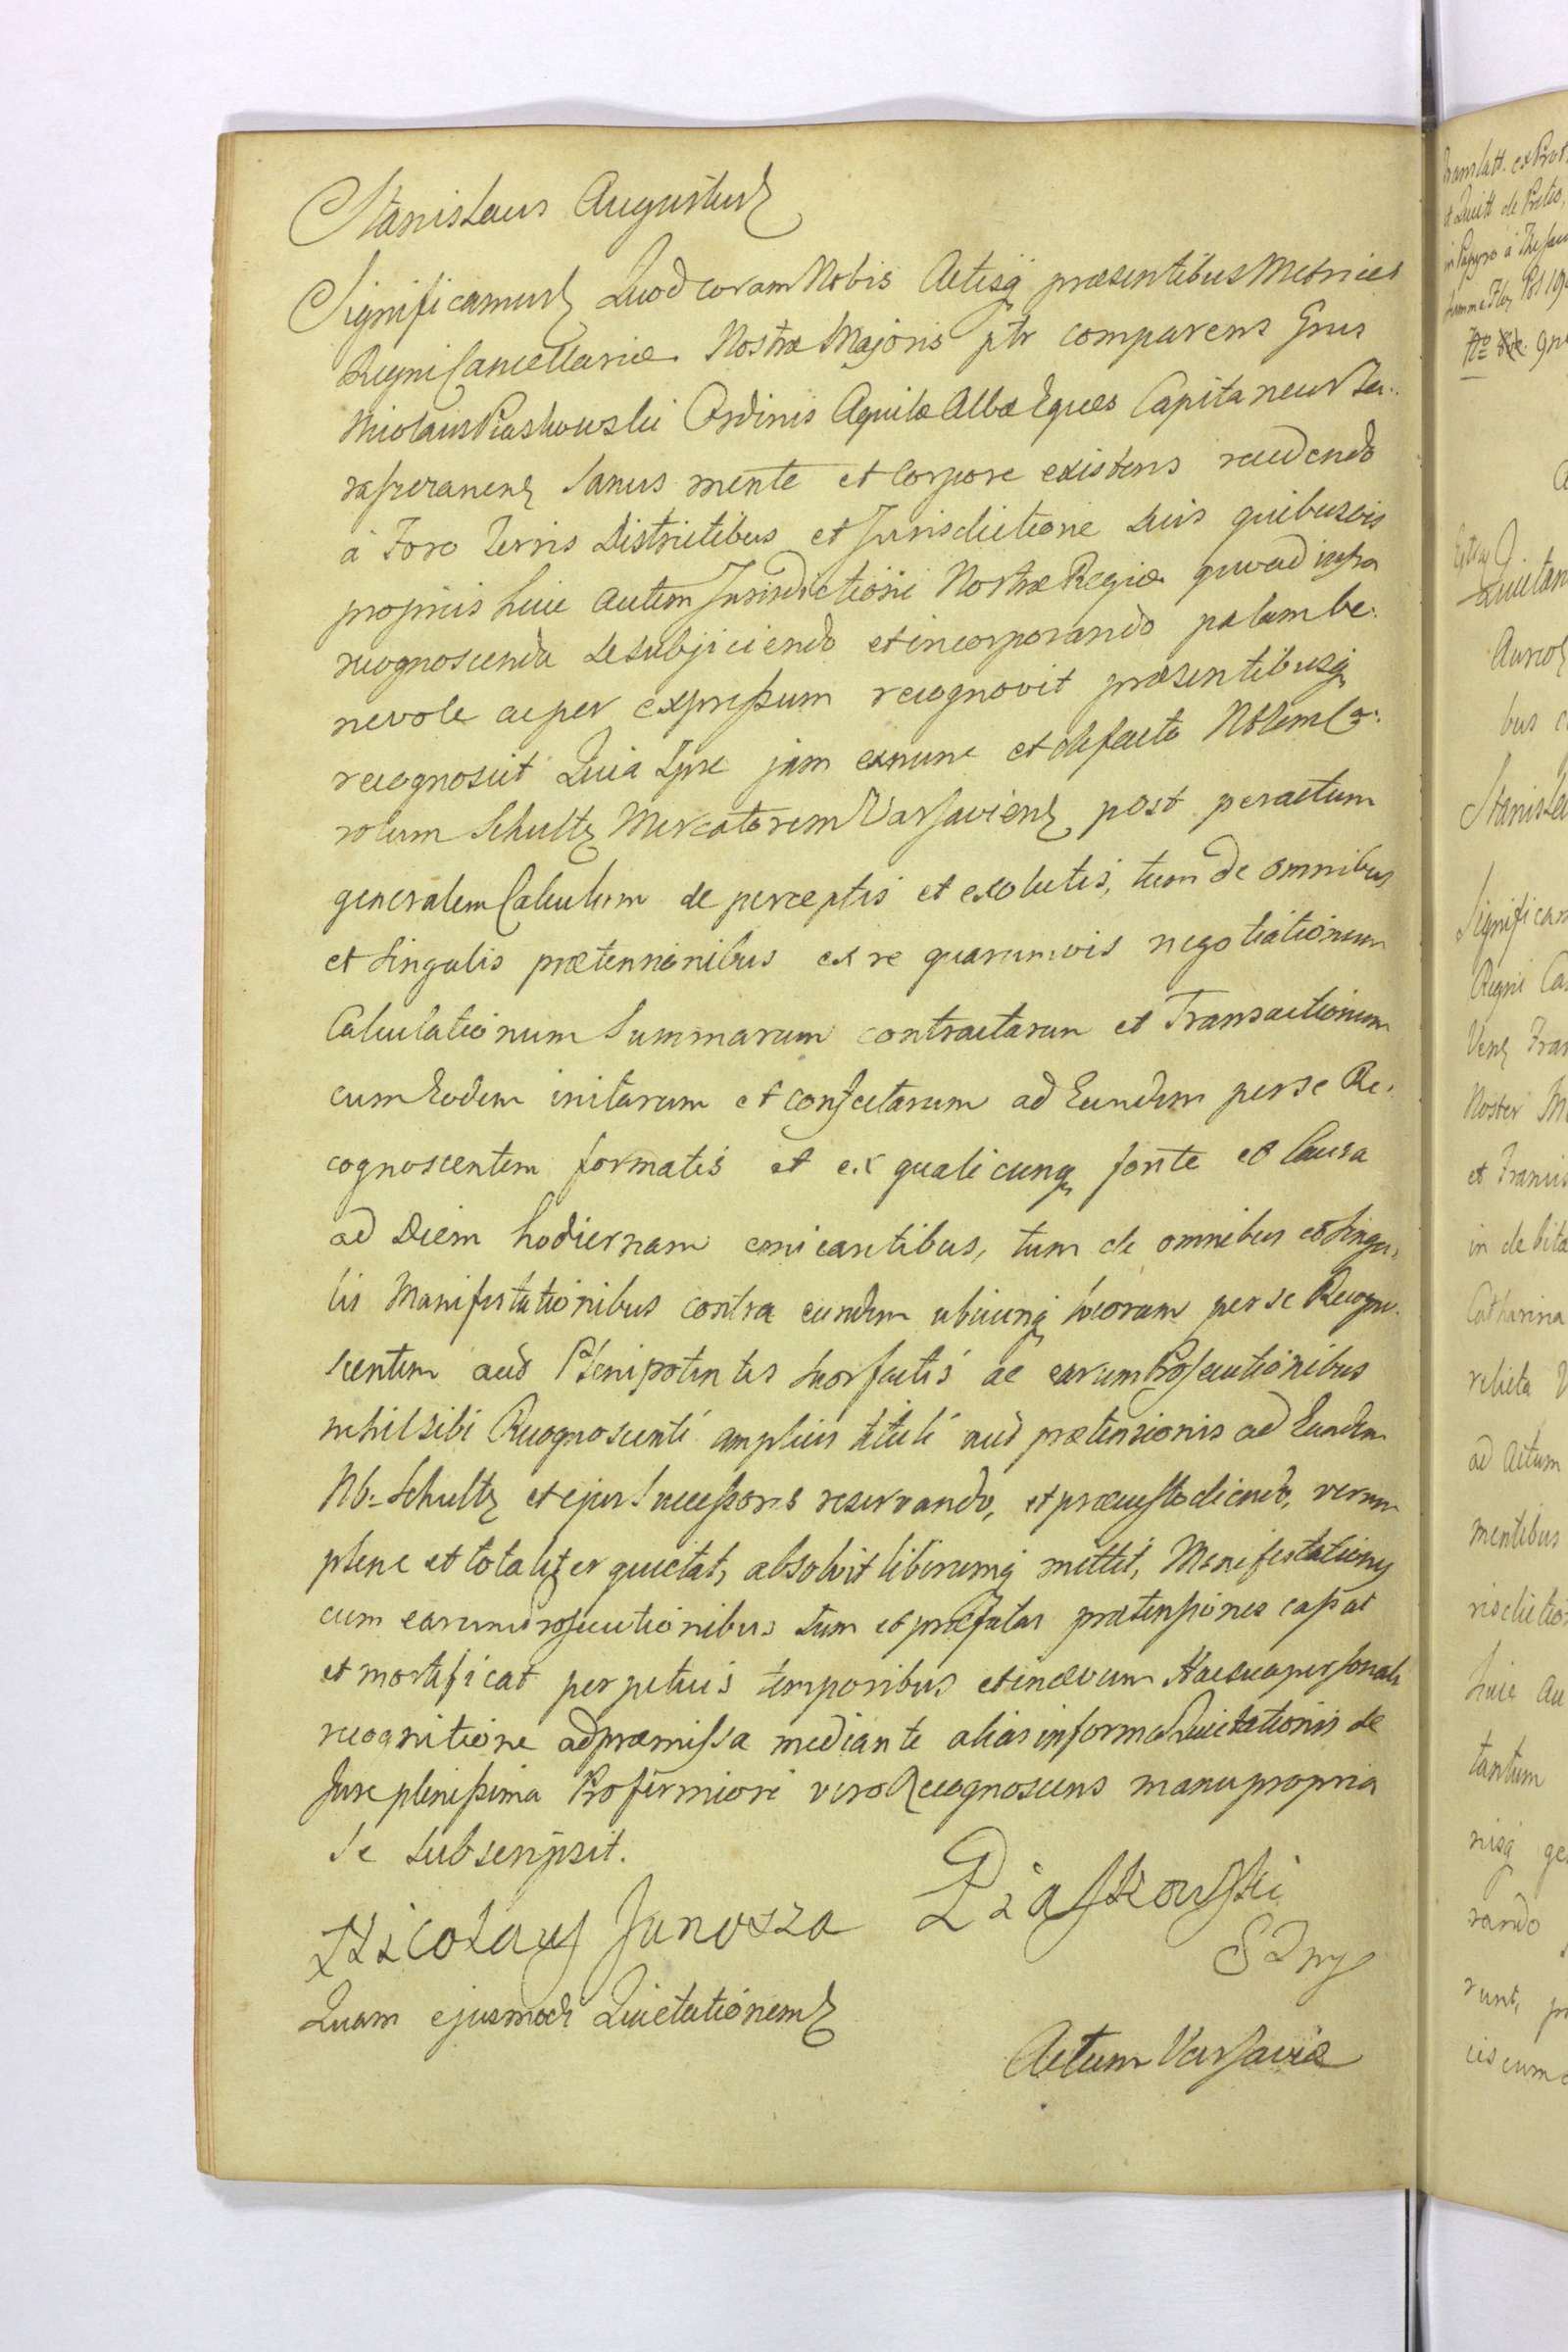 Stanislaus Augustus
Significamus Quod coram Nobis Actisq præsentibus Metrices
Regni Cancellariæ Nostræ Majoris ptr comparens Gnus
Nicolaus Piaskowski Ordinis Aquilæ Albæ Eques Capitaneus Ta-
raszczanens Sanus mente et Corpore existens recedendo
à Foro Terris Districtibus et Jurisdictione Suis quibusvis
propriis huic autem Jurisdictioni Nostræ Regiæ quoad infra
recognoscenda Se subjiciendo et incorporando palam be-
nevole ac per expressum recognovit præsentibusq
recognoscit Quia Ipse jam exnunc et de facto Nblem Ca-
rolum Schultz Mercatorem Varsaviens post peractum
generalem Calculum de perceptis et exolutis, tum de omnibus
et singulis prætensionibus ex re quarumvis negotiationum
Calculationum Summarum contractarum et Transactionum
cum Eodem initarum et confectarum ad Eundem per se Re-
cognoscentem formatis et ex qualicunq fonte et Causa
ad Diem hodiernam emicantibus, tum de omnibus et Singu-
lis Manifestationibus contra eundem ubicunq locorum per se Recogno-
scentem aut Plenipotentes suos factis ac earum Prosecutionibus
nihil sibi Recognoscenti amplius tituli aut prætensionis ad Eundem
Nb: Schultz et ejus Successores reservando, et præcustodiendo, verum
plene et totaliter quietat, absolvit liberumq mittit, Manifestationes
cum earum Prosecutionibus tum et præfatas prætensiones cassat
et mortificat perpetuis temporibus et in ævum Hac sua personali
recognitione ad præmissa mediante alias in forma Quietationis de
Jure plenissima Pro firmiori vero Recognoscens manu propria
Se subscripsit.
Nicolaus Junosza Piaskowski
Quam ejusmodi Quietationem
Actum Varsaviæ
Translatt. ex Prot
et Quitt de Pretio,
in Papyro à Thesau
Quietan
Aureos
bus
Stanislau
Significam
Regni Ca
Vens Fran
Noster M
et Francis
in debita
Catharina
relicta V
ad Actum
mentibus
risdictio
huic au
tantum
nisq ge
rando
runt, p